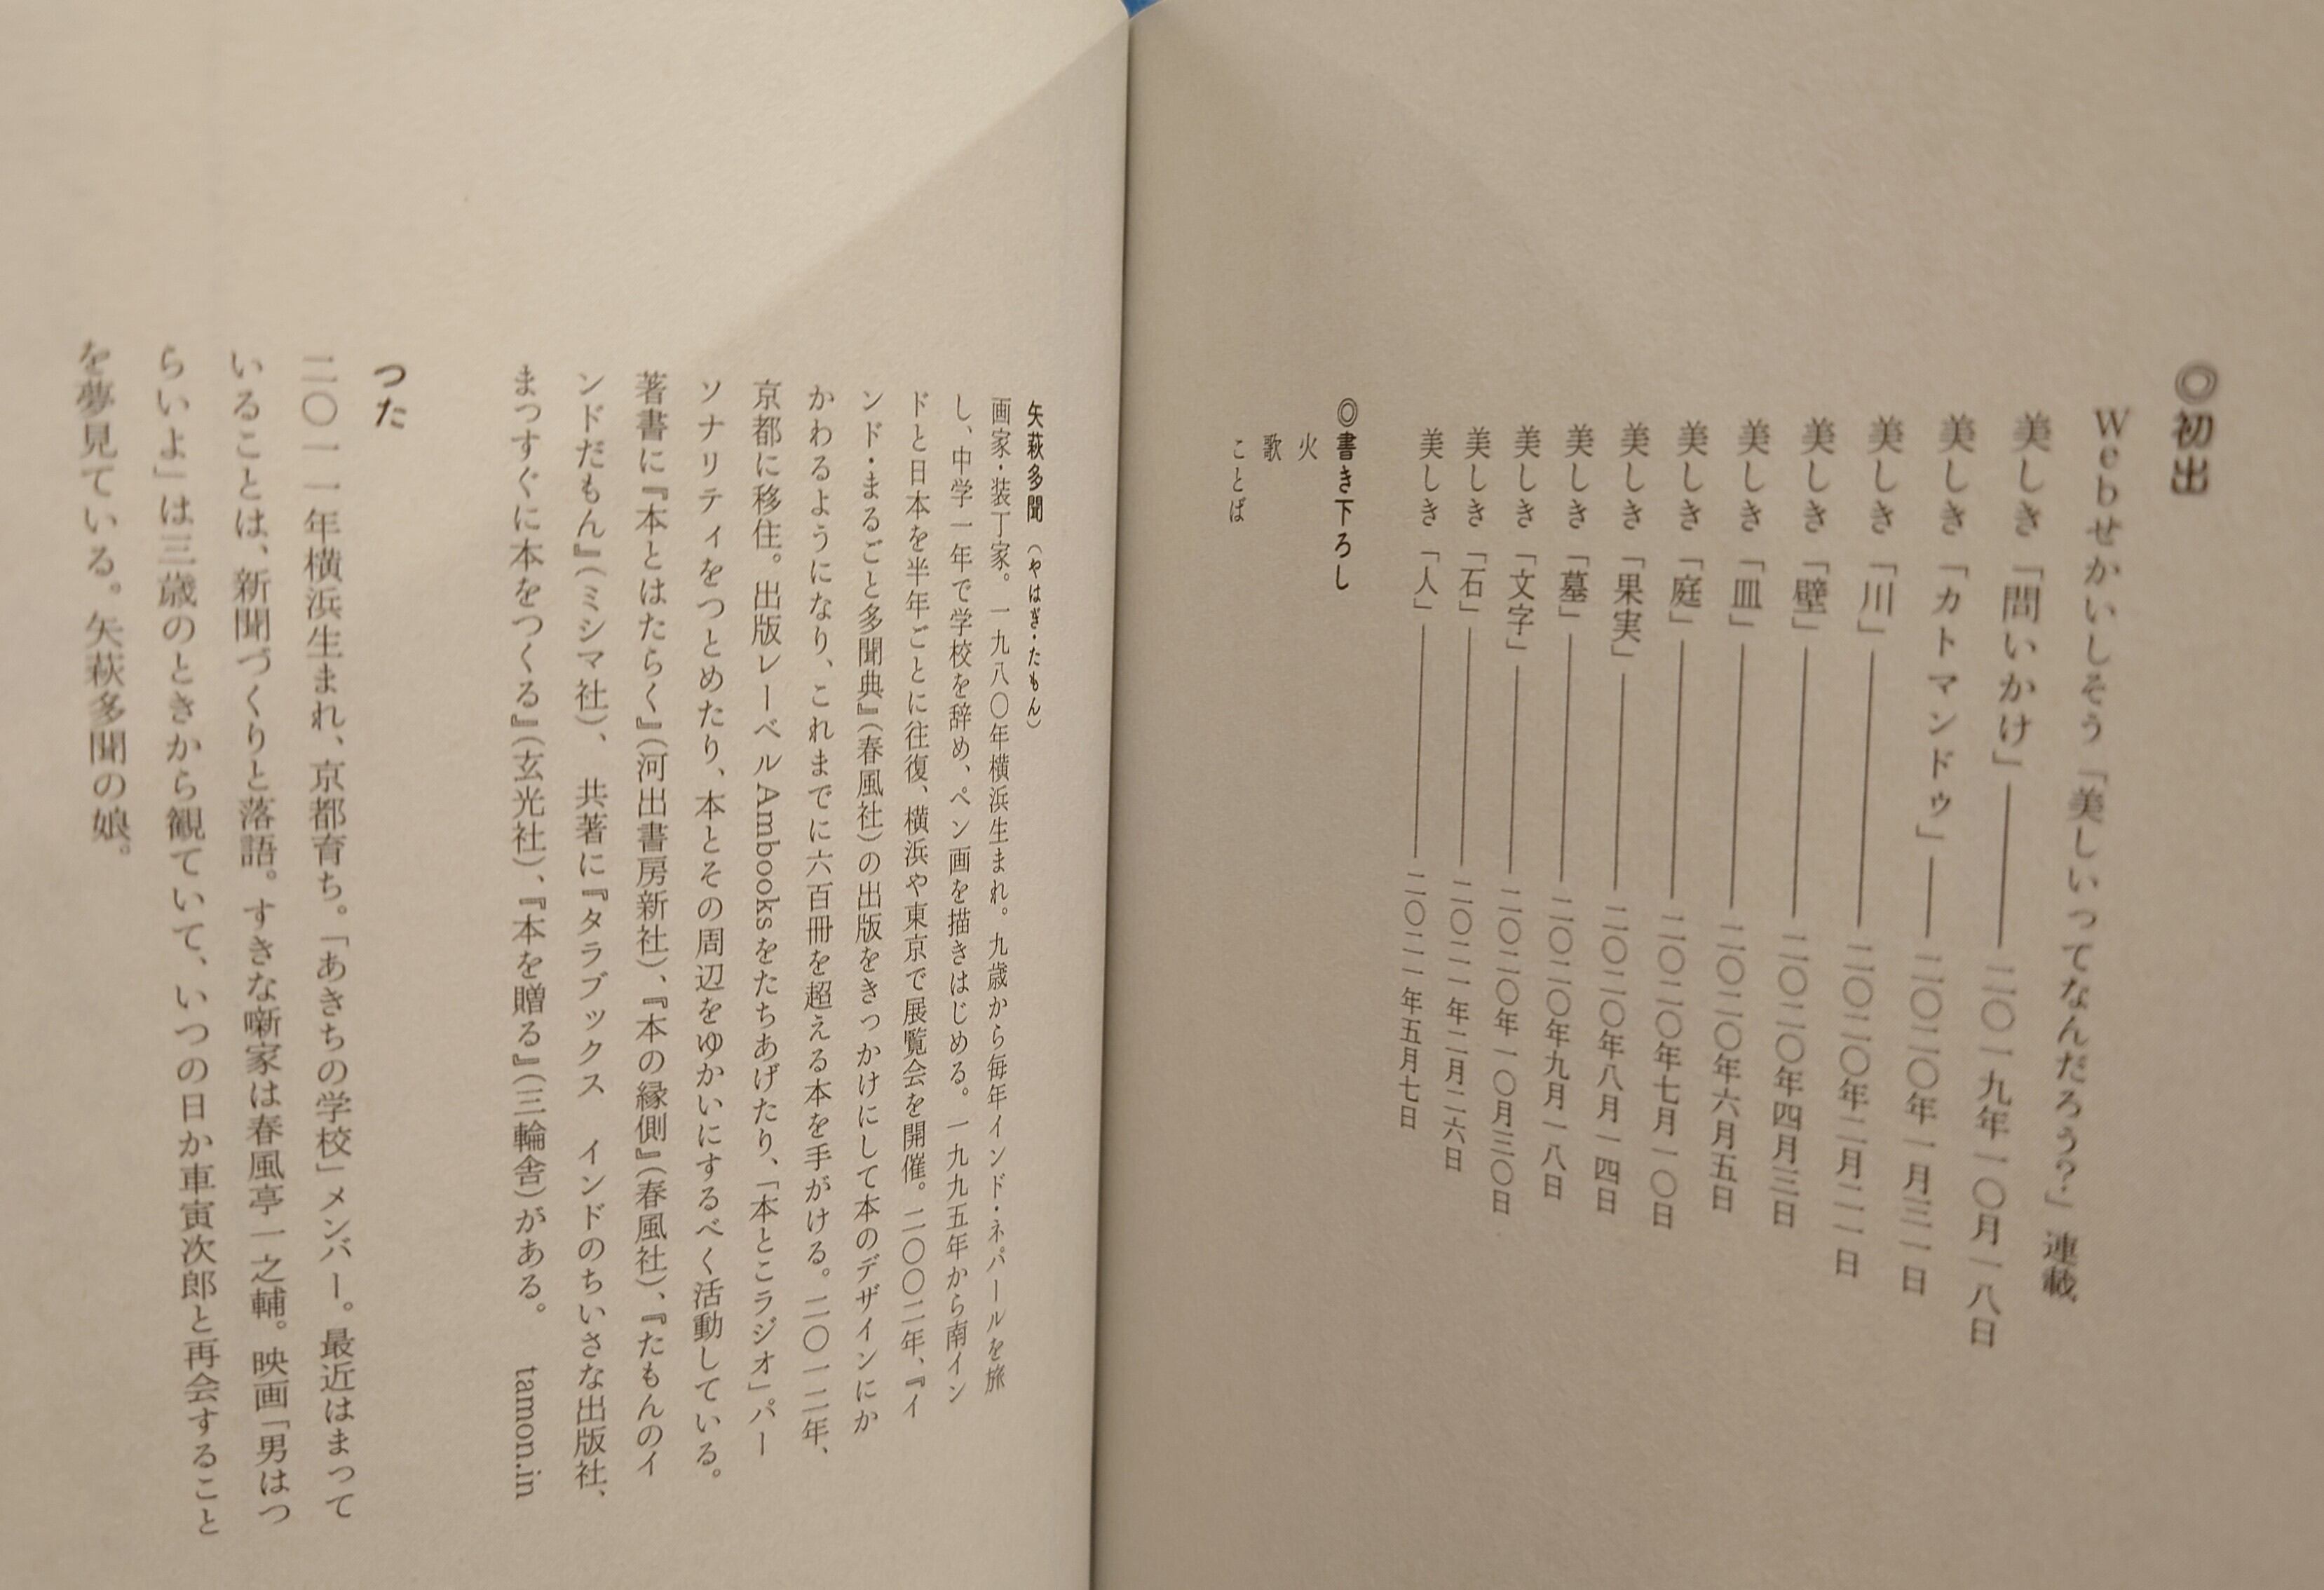 ◎初出
Webせかいしそう「美しいってなんだろう?」連載
美しき「問いかけ」――二〇一九年一〇月一八日
美しき「カトマンドゥ」――二〇二〇年一月三一日
美しき「川」――二〇二〇年二月二一日
美しき「壁」――二〇二〇年四月三日
美しき「皿」――二〇二〇年六月五日
美しき「庭」――二〇二〇年七月一〇日
美しき「果実」――二〇二〇年八月一四日
美しき「墓」――二〇二〇年九月一八日
美しき「文字」――二〇二〇年一〇月三〇日
美しき「石」――二〇二一年二月二六日
美しき「人」――二〇二一年五月七日
◎書き下ろし
火
歌
ことば
矢萩多聞（やはぎ・たもん）
画家・装丁家。一九八〇年横浜生まれ。九歳から毎年インド・ネパールを旅
し、中学一年で学校を辞め、ペン画を描きはじめる。一九九五年から南イン
ドと日本を半年ごとに往復、横浜や東京で展覧会を開催。二〇〇二年、『イ
ンド・まるごと多聞典』（春風社）の出版をきっかけにして本のデザインにか
かわるようになり、これまでに六百冊を超える本を手がける。二〇一二年、
京都に移住。出版レーベルAmbooksをたちあげたり、「本とこラジオ」パー
ソナリティをつとめたり、本とその周辺をゆかいにするべく活動している。
著書に『本とはたらく』（河出書房新社）、『本の縁側』（春風社）、『たもんのイ
ンドだもん』（ミシマ社）、共著に『タラブックス　インドのちいさな出版社、
まっすぐに本をつくる』（玄光社）、『本を贈る』（三輪舎）がある。　tamon.in
つた
二〇一一年横浜生まれ、京都育ち。「あきちの学校」メンバー。最近はまって
いることは、新聞づくりと落語。すきな噺家は春風亭一之輔。映画「男はつ
らいよ」は三歳のときから観ていて、いつの日か車寅次郎と再会すること
を夢見ている。矢萩多聞の娘。